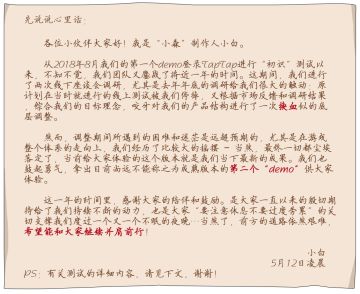 先说说心里话：
各位小伙伴大家好！我是“小森”制作人小白。
从2018年8月我们的第一个demo登录TapTap进行“初识”测试以
来，不知不觉，我们团队又鏖战了将近一年的时间。这期间，我们进行
了两次线下座谈会调研，尤其是去年年底的调研给我们很大的触动，原
计划在当时就进行的线上测试被我们停掉，又根据市场反馈和调研结果
，综合我们的目标理念，咬牙对我们的产品结构进行了一次换血似的底
层调整。
然而，调整期间所遇到的困难和迷茫是远超预期的，尤其是在游戏
整个体系的走向上，我们经历了比较大的摇摆 - 当然，最终一切都尘埃
落定了，当前给大家体验的这个版本就是我们当下最新的成果。我们也
鼓起勇气，拿出目前尚还不能称之为成熟版本的第二个“demo”供大家
体验。
这一年的时间里，感谢大家的陪伴和鼓励。是大家一直以来的殷切期
待给了我们持续不断的动力，也是大家“要注意休息不要过度劳累”的关
切支撑我们度过一个又一个不眠的夜晚…当然了，前方的道路依然艰难，
希望能和大家继续并肩前行！
小白
5月12日凌晨
PS：有关测试的详细内容，请见下文，谢谢！